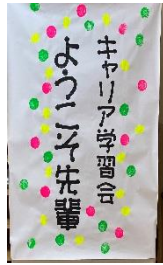 キャリア学習会
ようこそ先輩